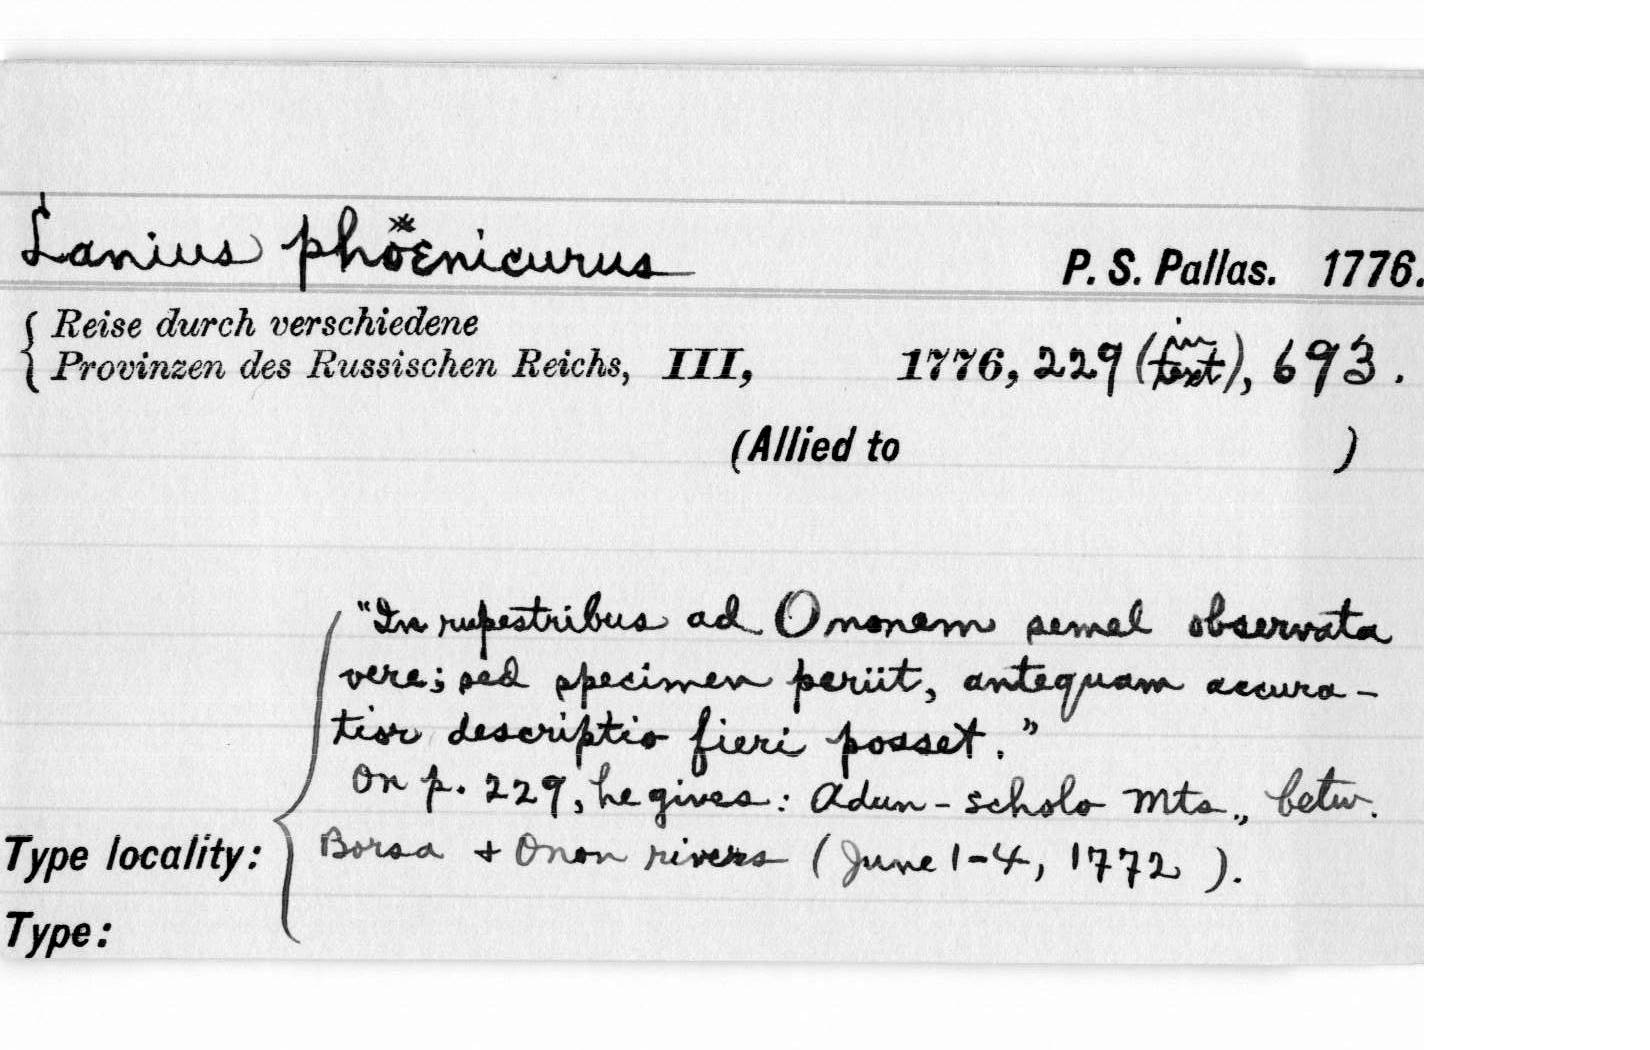 Lanius phöenicurus P. S. Pallas. 1776.
Reise durch verschiedene
Provinzen des Russischen Reichs, III, 1776, 229 (in text), 693.
(Allied to )
"In rupestribus ad Ononem semel observata
vere; sed specimen periit, antequam accura-
tior descriptio fieri posset."
On p. 229, he gives: Adun-scholo Mts., betw.
Type locality: Borsa + Onon rivers (June 1-4, 1772 ).
Type: